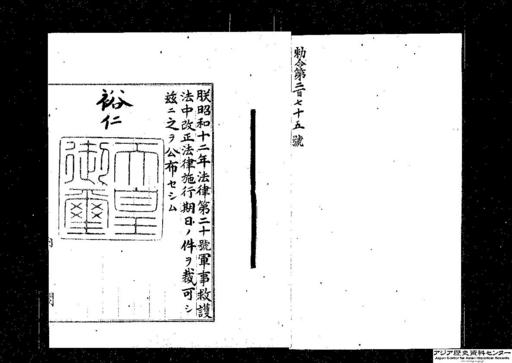 勅令第二百七十五號
朕昭和十二年法律第二十號軍事救護
法中改正法律施行期日ノ件ヲ裁可シ
茲ニ之ヲ公布セシム
裕仁
天皇
御璽
アジア歴史資料センター
Japan Center for Asian Historical Records